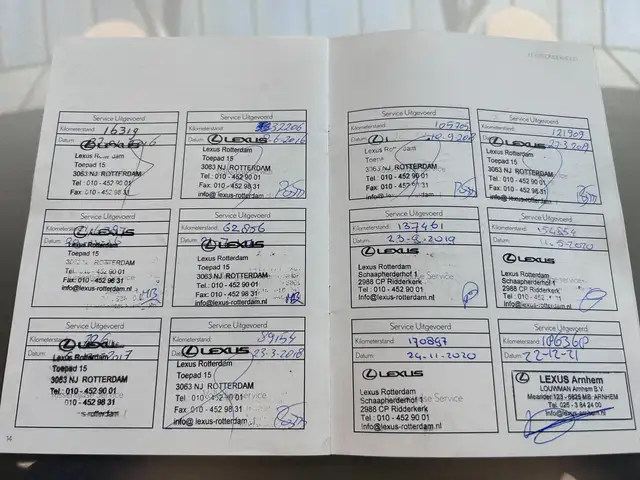 Service Uitgevoerd
Kilometerstand: 16319
LEXUS
Lexus Rotterdam
Toepad 15
3063 NJ ROTTERDAM
Tel: 010 - 452 90 01
Fax: 010 - 452 98 31
Service Uitgevoerd
Kilometerstand: 32206
LEXUS 6-2016
Lexus Rotterdam
Toepad 15
3063 NJ ROTTERDAM
Tel: 010 - 452 90 01
Fax: 010 - 452 98 31
info@lexus-rotterdam.nl
LEXUS
Lexus Rotterdam
Toepad 15
ROTTERDAM
Tel: 010 - 452 90 01
Fax: 010 - 452 98 31
info@lexus-rotterdam.nl
Service Uitgevoerd
Kilometerstand: 62856
Datum: LEXUS
Lexus Rotterdam
Toepad 15
3063 NJ ROTTERDAM
Tel: 010 - 452 90 01
Fax: 010 - 452 98 31
info@lexus-rotterdam.nl
Service Uitgevoerd
LEXUS
Datum: 2017
Lexus Rotterdam
Toepad 15
3063 NJ ROTTERDAM
Tel: 010 - 452 90 01
010 - 452 98 31
Service Uitgevoerd
Kilometerstand: 89154
LEXUS 23-3-2018
Lexus Rotterdam
Toepad 15
3063 NJ ROTTERDAM
Tel: 010 - 452 90 01
Fax: 010 - 452 98 31
info@lexus-rotterdam.nl
14
Service Uitgevoerd
Kilometerstand: 105205
9-2018
Lexus Rotterdam
15
3063 NJ ROTTERDAM
Tel: 010 - 452 90 01
Fax: 010 - 452 98 31
info@lexus-rotterdam.nl
Service Uitgevoerd
Kilometerstand: 121909
LEXUS
Lexus Rotterdam
Toepad 15
3063 NJ ROTTERDAM
Tel: 010 - 452 90 01
Fax: 010 - 452 98 31
info@lexus-rotterdam.nl
Service Uitgevoerd
Kilometerstand: 137461
Datum: 23-9-2019
LEXUS
Lexus Rotterdam
Schaapherderhof 1
2988 CP Ridderkerk
Tel: 010 - 452 90 01
info@lexus-rotterdam.nl
Service Uitgevoerd
Kilometerstand:
Datum: 2020
LEXUS
Lexus Rotterdam
Schaapherderhof 1
2988 CP Ridderkerk
Tel: 010 - 452 90 01
info@lexus-rotterdam.nl
Service Uitgevoerd
Kilometerstand: 170897
Datum: 24-11-2020
LEXUS
Lexus Rotterdam
Schaapherderhof 1
2988 CP Ridderkerk
Tel: 010 - 452 90 01
info@lexus-rotterdam.nl
Service Uitgevoerd
Kilometerstand:
Datum: 22-12-21
LEXUS Arnhem
LOUWMAN Arnhem B.V.
Meander 123 - 6825 MB ARNHEM
Tel. 026 - 3 84 24 00